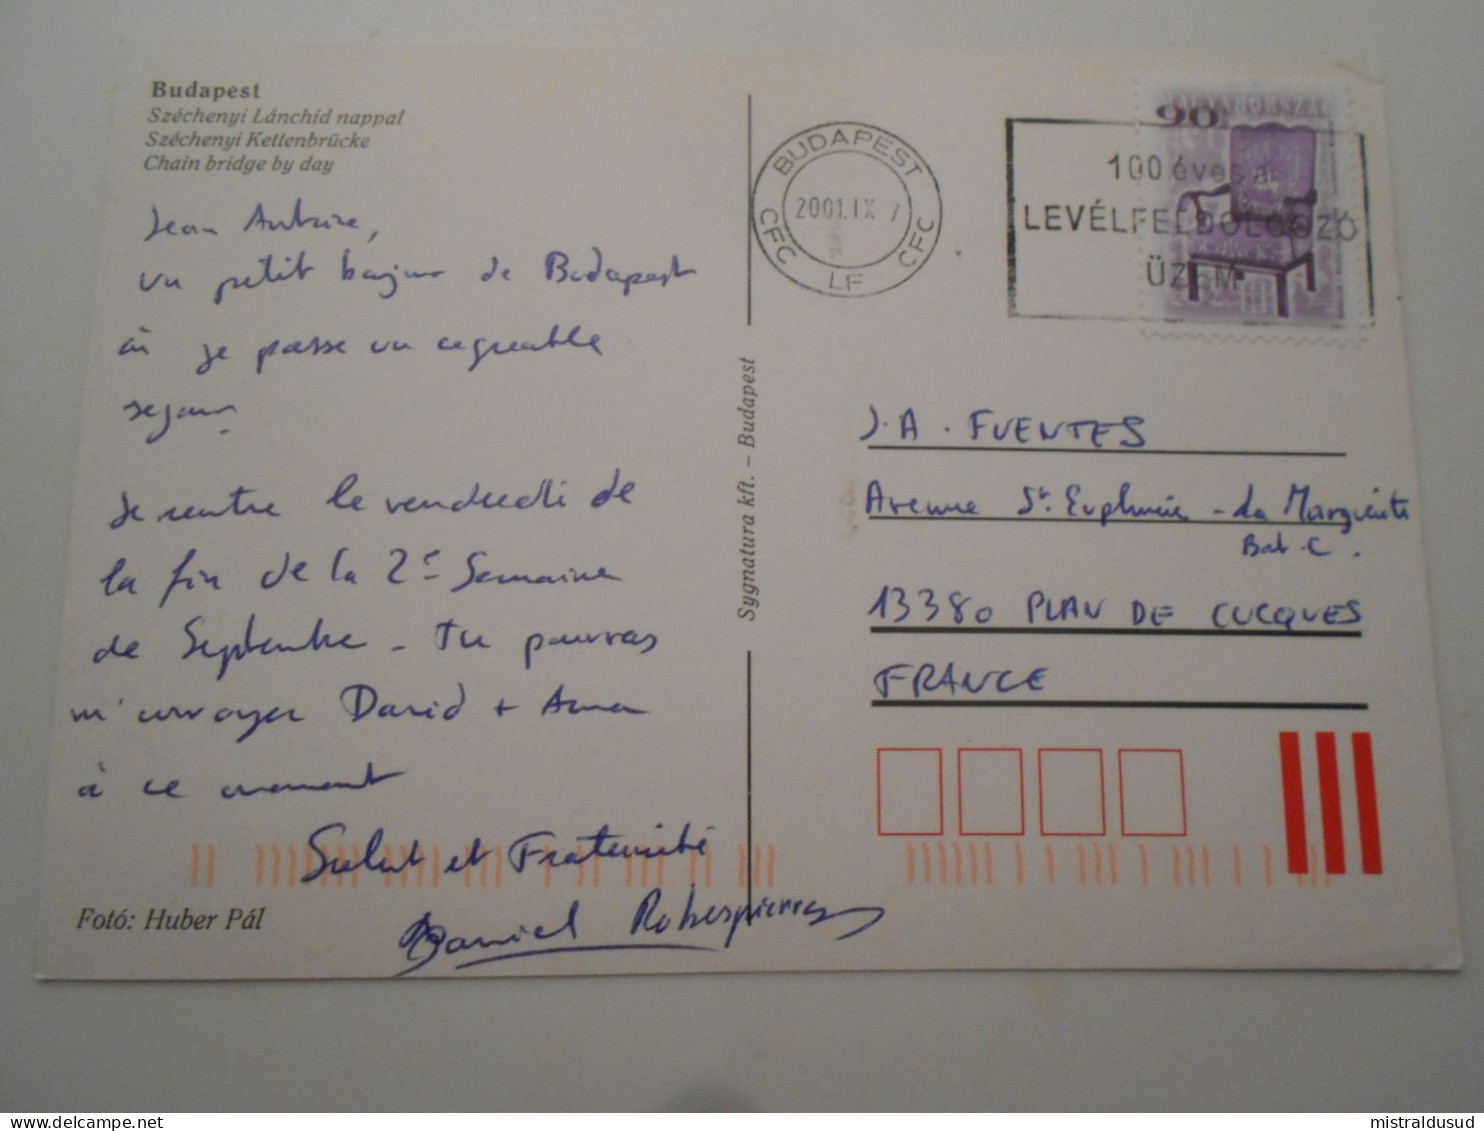 Budapest
Széchenyi Lánchíd nappal
Széchenyi Kettenbrücke
Chain bridge by day
Jean Antoine,
un petit bonjour de Budapest
où je passe un agreable
sejour.
Je rentre le vendredi de
la fin de la 2e semaine
de Septembre - Tu pourras
m'envoyer David + Anna
à ce moment
Salut et Fraternité
Daniel Robespierre
Fotó: Huber Pál
Sygnatura kft. – Budapest
BUDAPEST
2001.IX 7
CFC LF CFC
MAGYARORSZÁG
90
100 éves a
LEVÉLFELDOLGOZÓ
ÜZEM
J.A. FUENTES
Avenue St Euphémie - La Marguerite
Bat. C.
13380 PLAN DE CUCQUES
FRANCE
mistraldusud